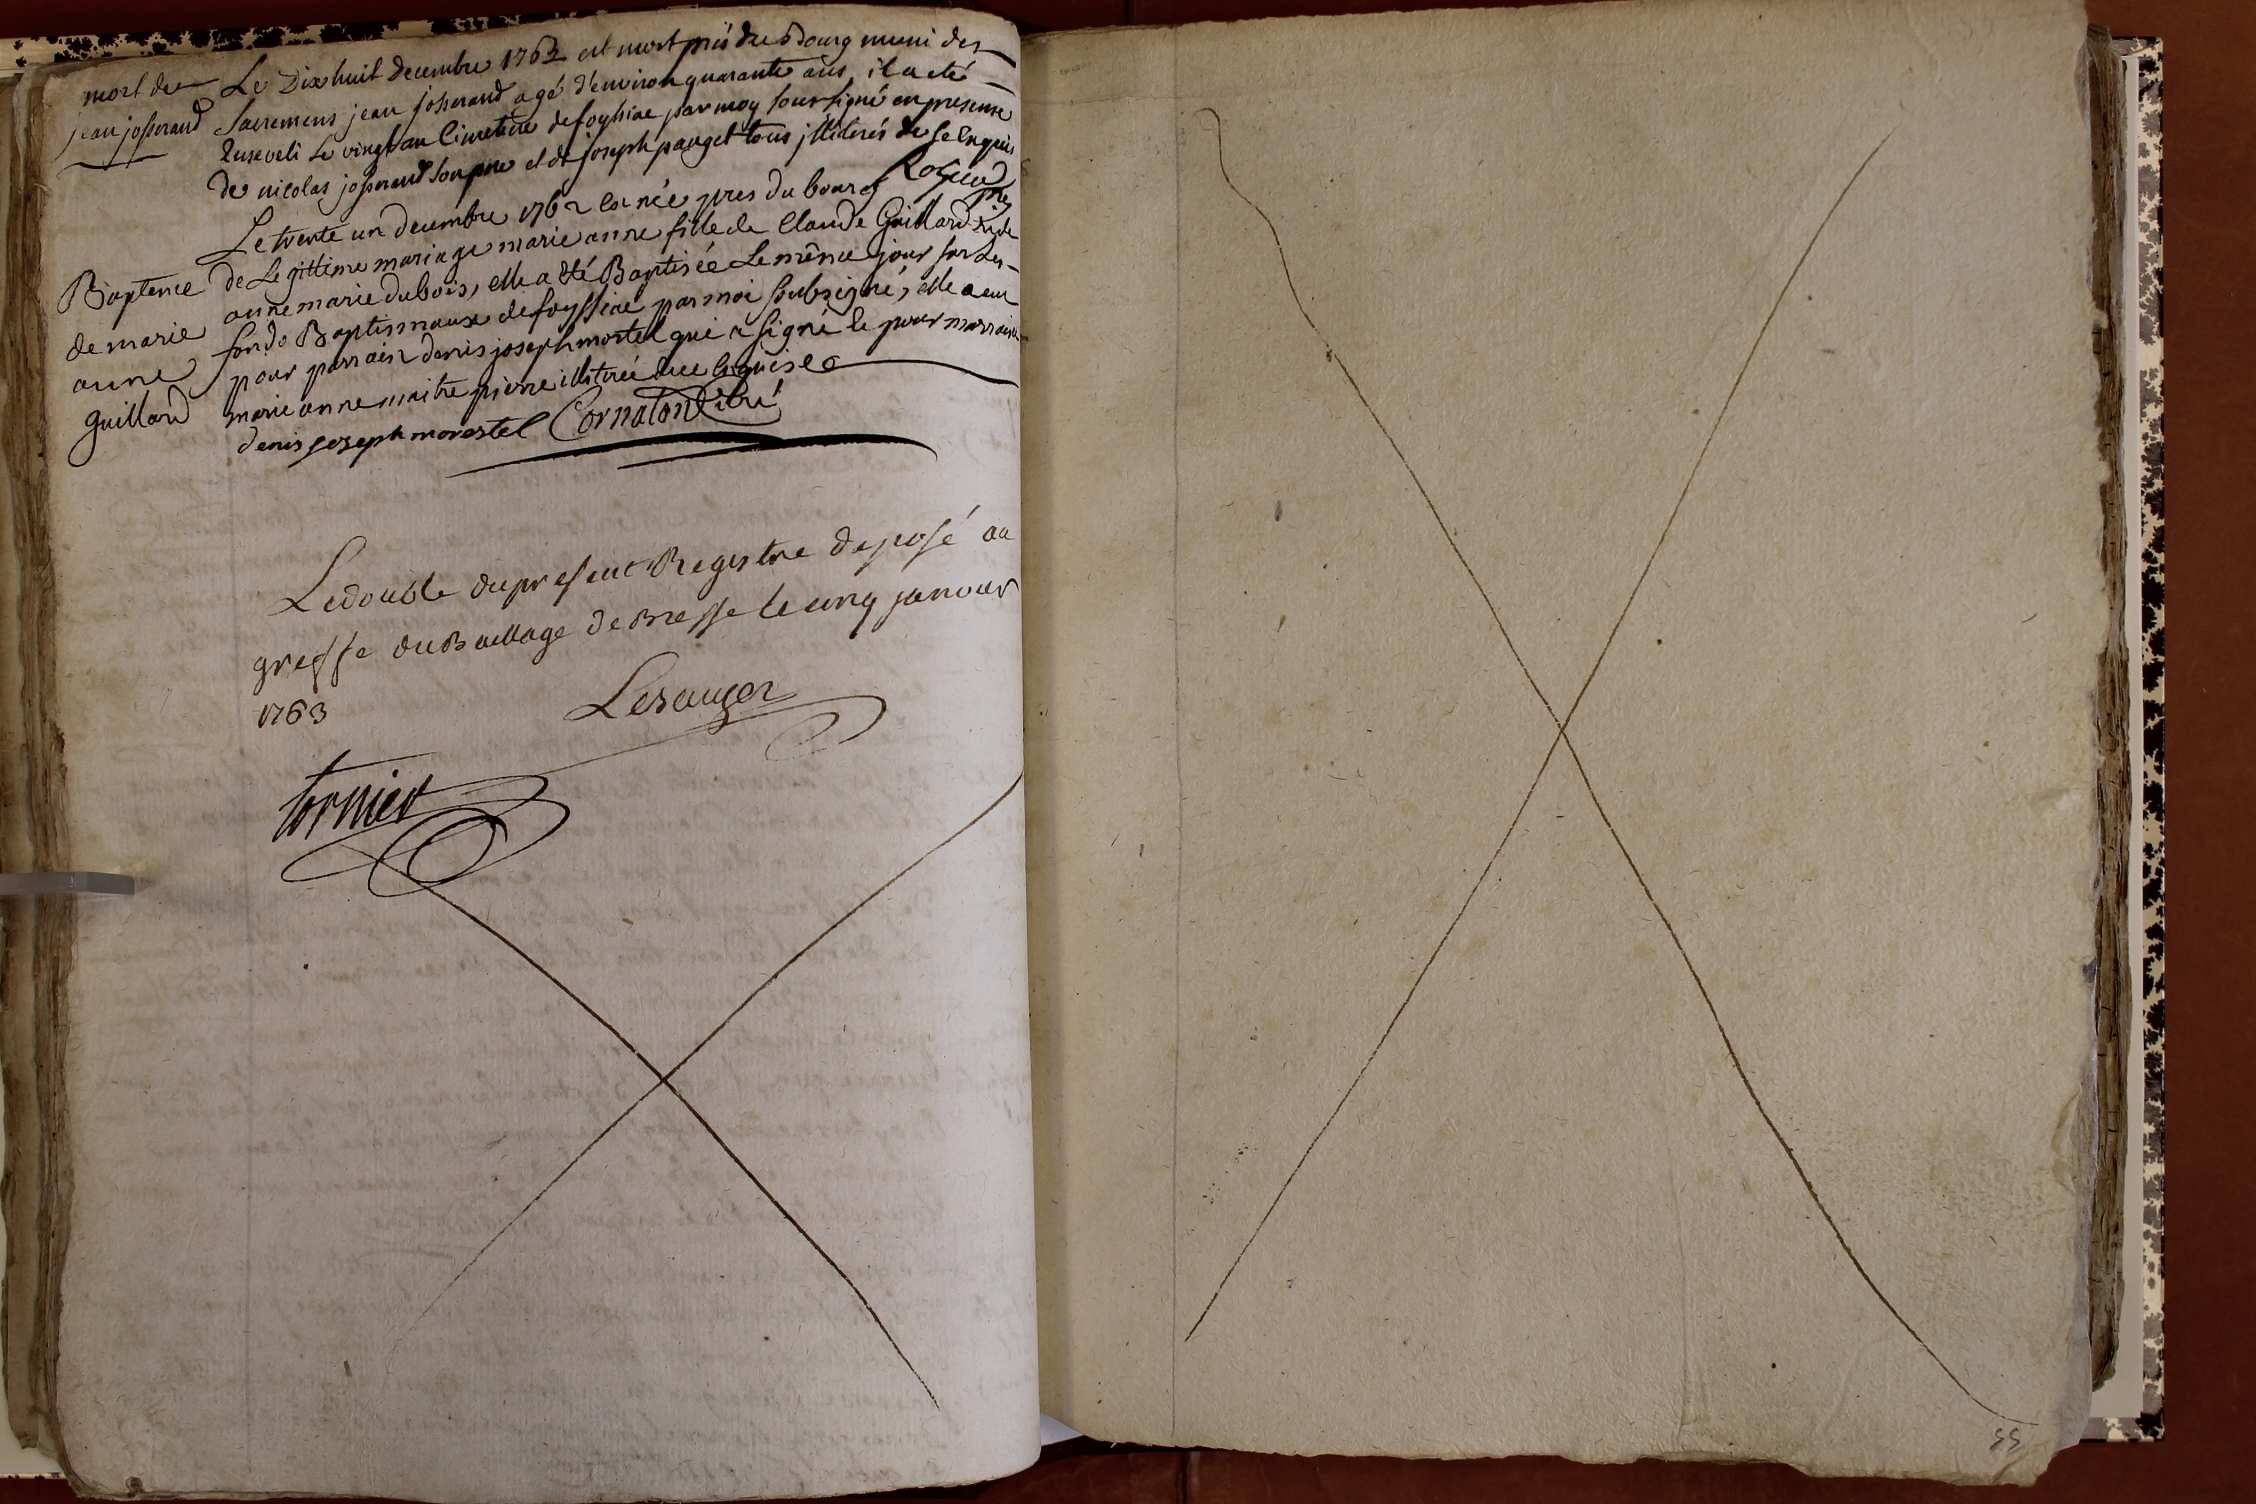 mort de
jean josserand
Le Dix huit decembre 1762 est mort près du Bourg muni des
sacremens jean josserand agé d'environ quarante ans, il a eté
enseveli Le vingt au Cimetiere de foyssiae par moy soussigné en presense
de nicolas josserand son pere et de joseph pauget tous illiterés de ce enquis
Bapteme
de marie
anne
guillard
Le trente un decembre 1762 est née pres du bourg
de Legittime mariage marie anne fille de Claude Guillard et de
anne marie dubois, elle a été Baptisée Le même jour sur Les
fonds Baptismaux de foyssiae par moi soubsigné, elle a eu
pour parrain denis joseph morstel qui a signé le pour marraine
marie anne maitre pierre illitrée dee enquise
denis joseph morestel Cornaton
Le double du present Registre deposé au
greffe du Bailliage de Bresse le cinq janvier
1763
Lesauger
tornier
55